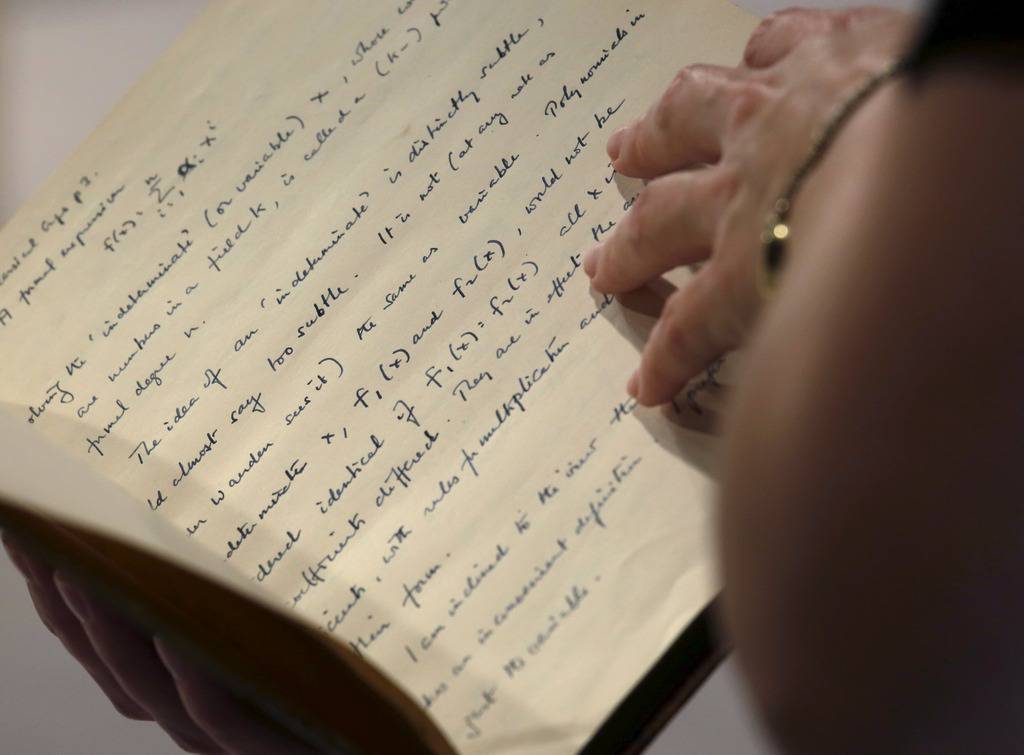 A formal expression
f(x) = Σ αᵢ xⁱ
the 'indeterminate' (or variable) x, whose
are numbers in a field k, is called a (k-)
formal degree n.
The idea of an 'indeterminate' is distinctly subtle,
almost say too subtle. It is not (at any rate as
waerden sees it) the same as variable. Polynomials in
determinate x, f₁(x) and f₂(x), would not be
dered identical if f₁(x) = f₂(x) all x
coefficients differed. They are in effect the
cients, with rules for multiplication and
their form.
I am inclined to the view
an inconvenient definition
just the variable.